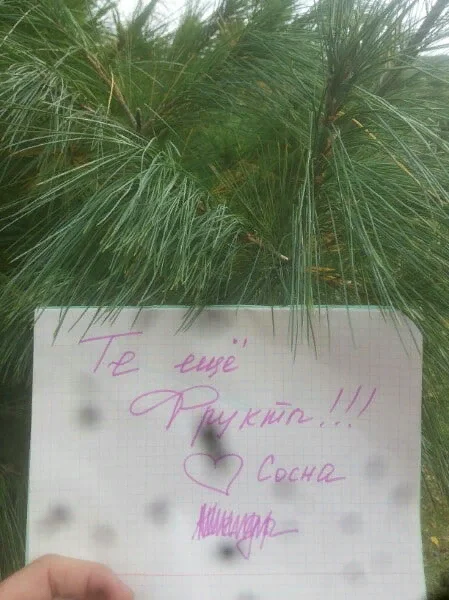 Те ещё
Фрукты!!!
♡ Сосна